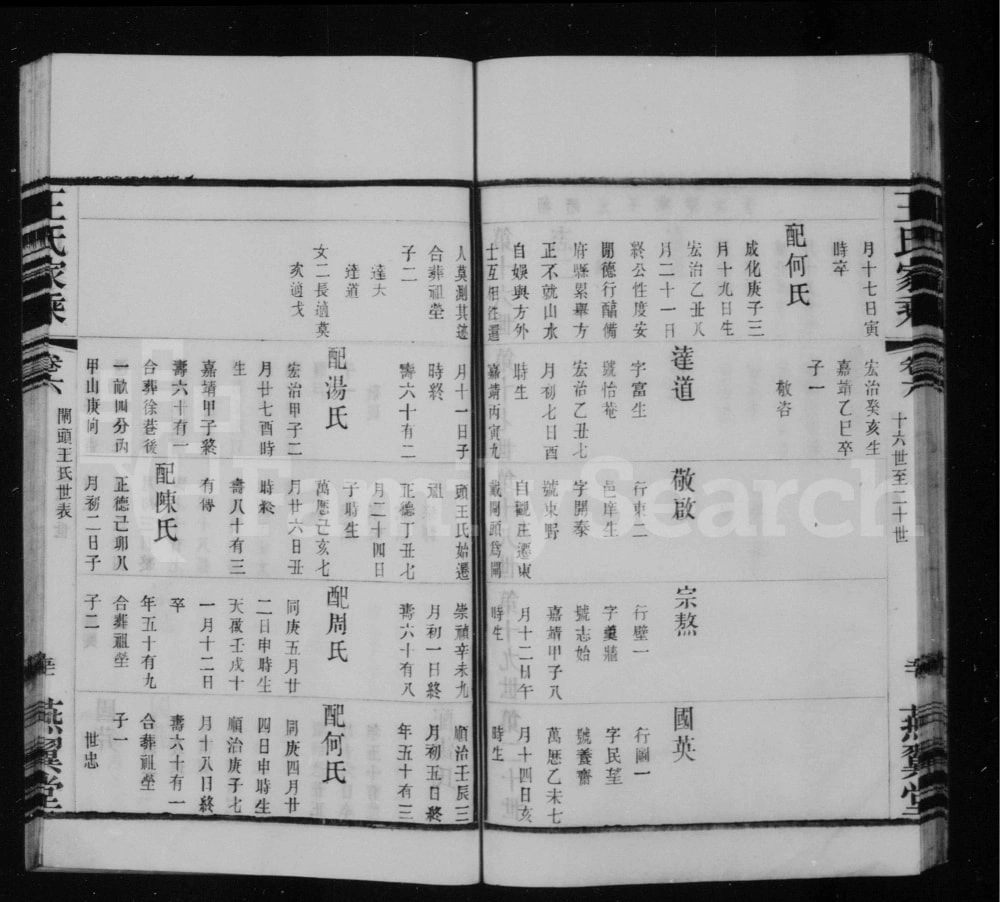 王氏家乘
卷六
十六世至二十世
燕翼堂
月十七日寅
時卒
配何氏
成化庚子三
月十九日生
宏治乙丑八
月二十一日
終公性度安
閒德行醕備
府縣累舉方
正不就山水
自娛與方外
士互相往還
人莫測其迹
合葬祖塋
子二
達夫
達道
女二長適莫
次適戈
宏治癸亥生
嘉靖乙巳卒
子一
敬
達道
字富生
號怡菴
宏治乙丑七
月初七日酉
時生
嘉靖丙寅九
月十一日子
時終
壽六十有二
配湯氏
宏治甲子二
月廿七酉時
生
嘉靖甲子終
壽六十有一
合葬徐巷後
一畝四分丙
甲山庚向
敬啟
行東二
邑庠生
字開泰
號東野
自觀庄遷東
戴閘頭爲閘
頭王氏始遷
祖
正德丁丑七
月二十四日
子時生
萬歷己亥七
月廿六日丑
時終
壽八十有三
有傳
配陳氏
正德己卯八
月初二日子
宗熬
行壁一
字羹牆
號志始
嘉靖甲子八
月十二日午
時生
崇禎辛未九
月初一日終
壽六十有八
配周氏
同庚五月廿
二日申時生
天啟壬戌十
一月十二日
卒
年五十有九
合葬祖塋
子二
國英
行圖一
字民望
號養齋
萬歷乙未七
月十四日亥
時生
順治壬辰三
月初五日終
年五十有三
配何氏
同庚四月廿
四日申時生
順治庚子七
月十八日終
壽六十有一
合葬祖塋
子一
世忠
王氏家乘
卷六
閘頭王氏世表
燕翼堂
FamilySearch